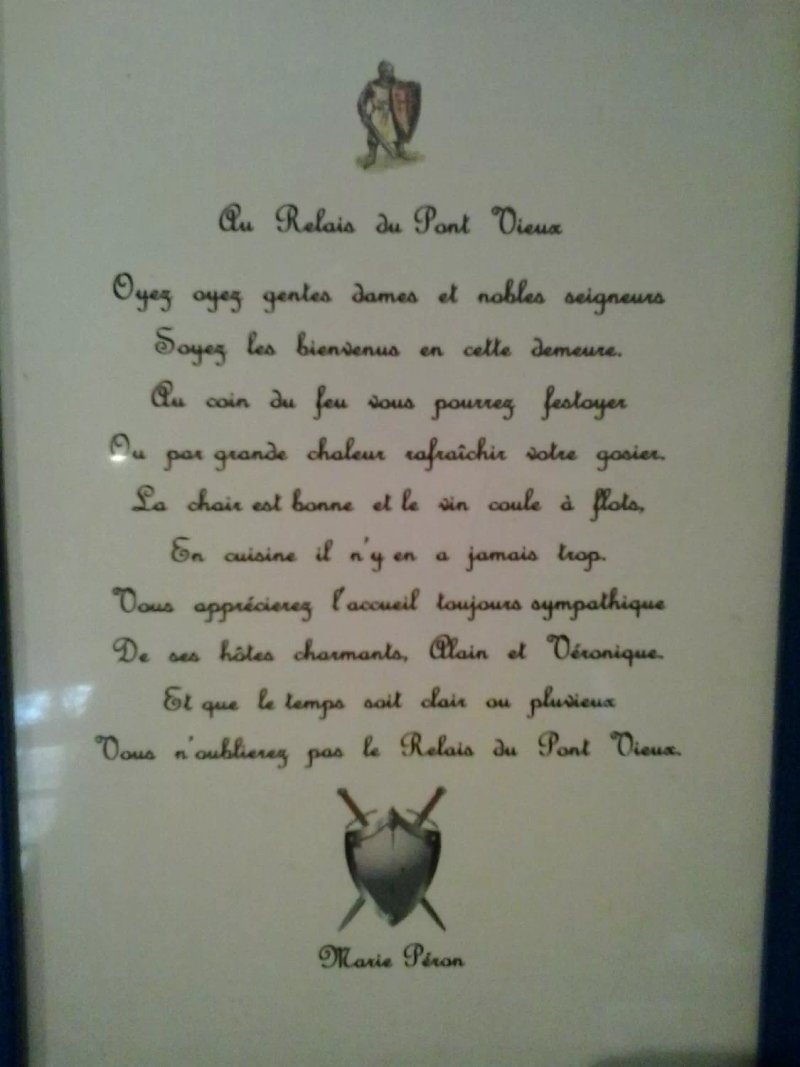 Au Relais du Pont Vieux
Oyez oyez gentes dames et nobles seigneurs
Soyez les bienvenus en cette demeure.
Au coin du feu vous pourrez festoyer
Ou par grande chaleur rafraîchir votre gosier.
La chair est bonne et le vin coule à flots,
En cuisine il n'y en a jamais trop.
Vous apprécierez l'accueil toujours sympathique
De ses hôtes charmants, Alain et Véronique.
Et que le temps soit clair ou pluvieux
Vous n'oublierez pas le Relais du Pont Vieux.
Marie Péron